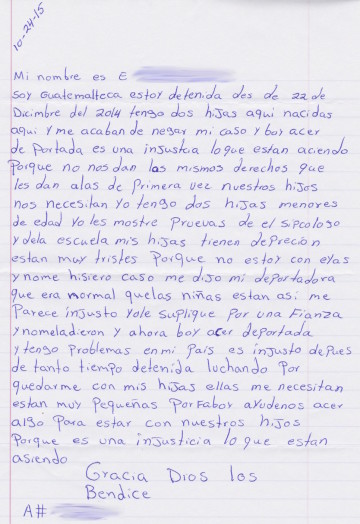 10-24-15
Mi nombre es E
Soy Guatemalteca estoy detenida des de 22 de
Dicimbre del 2014 tengo dos hijas aqui nacidas
aqui y me acaban de negar mi caso y boy acer
de Portada es una injustcia lo que estan aciendo
Porque no nos dan los mismos derechos que
les dan alas de Primera vez nuestros hijos
nos necesitan yo tengo dos hijas menores
de edad yo les mostre Pruevas de el sipcologo
y dela escuela mis hijas tienen dePreción
estan muy tristes Porque no estoy con eyas
y nome hisiero caso me dijo mi dePortadora
que era normal quelas niñas estan asi me
Parece injusto yole suplique Por una Fianza
y nomeladieron y ahora boy acer dePortada
y tengo Problemas en mi Pais es injusto dePues
de tanto tiempo detenida luchando Por
quedarme con mis hijas ellas me necesitan
estan muy Pequeñas PorFabor ayudenos acer
algo Para estar con nuestros hijos
Porque es una injusticia lo que estan
asiendo
Gracia Dios los
Bendice
A#